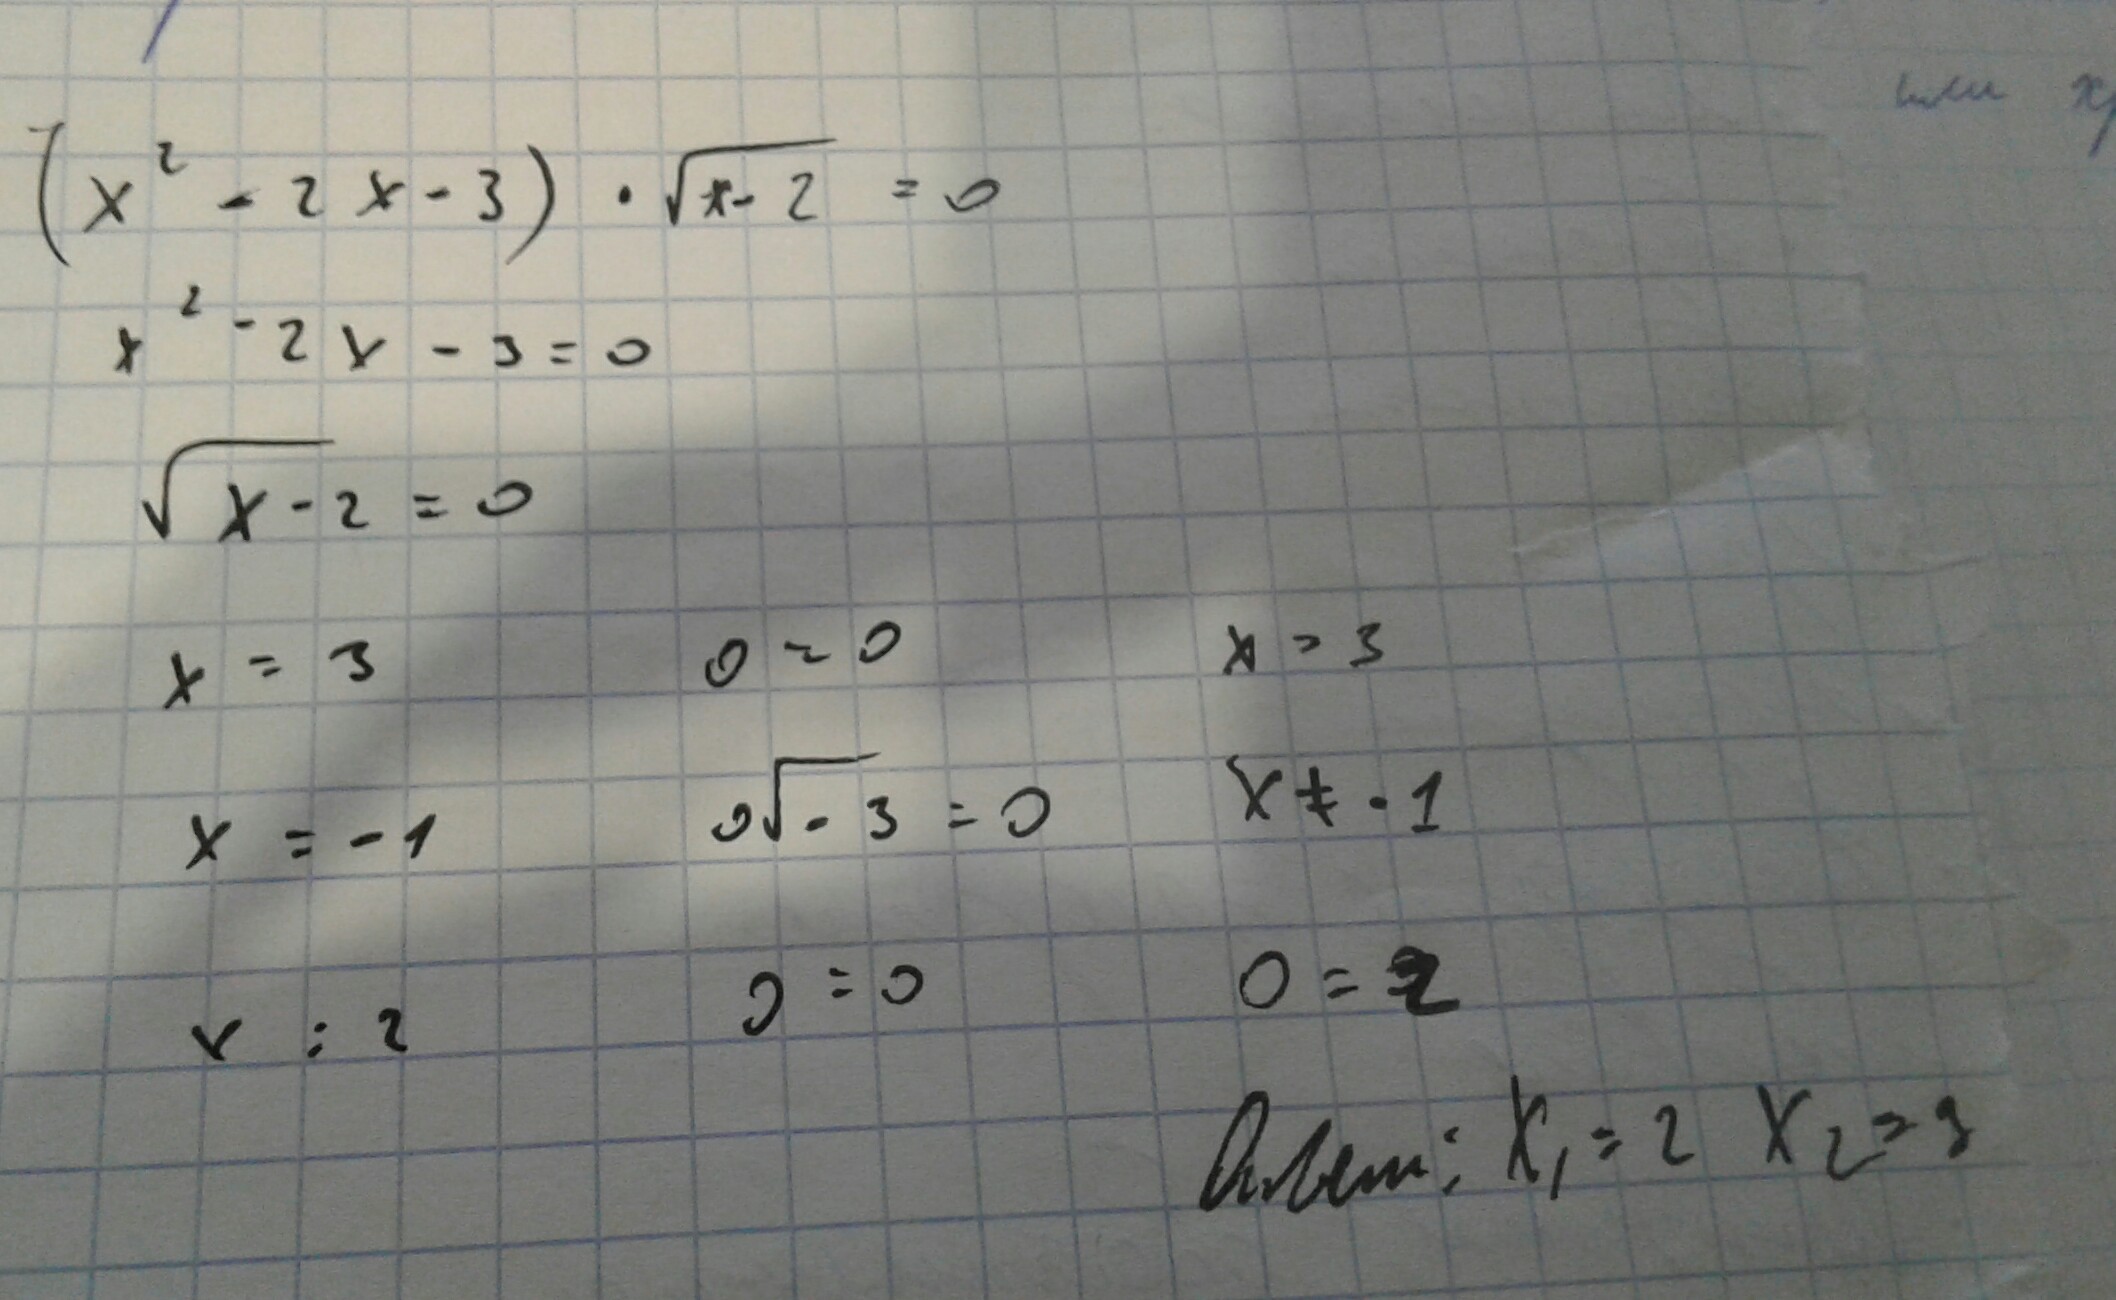 или
(x² - 2x - 3) · √(x - 2) = 0
x² - 2x - 3 = 0
√(x - 2) = 0
x = 3 0 = 0 x = 3
x = -1 0√-3 = 0 x ≠ -1
x = 2 0 = 0 0 = 2
Ответ: X₁ = 2 X₂ = 3